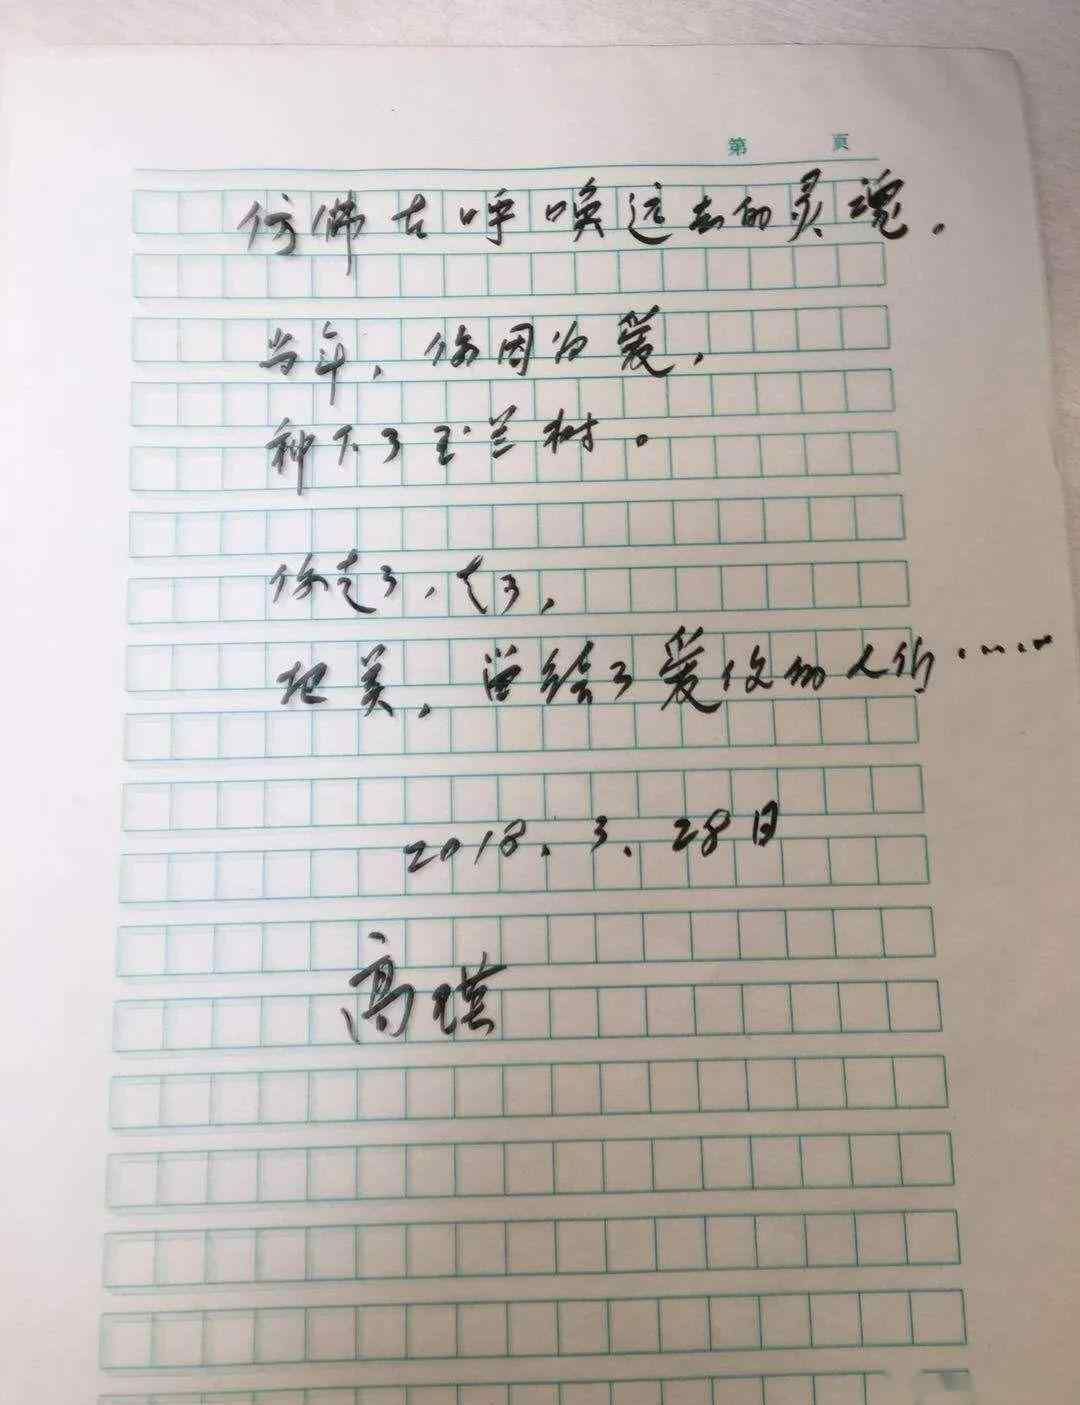 第 頁
仿佛在呼唤远去的灵魂.
当年,你因为爱,
种下了玉兰树。
你走了,走了,
把美,留给了爱你的人们……
2018.3.28日
高瑛